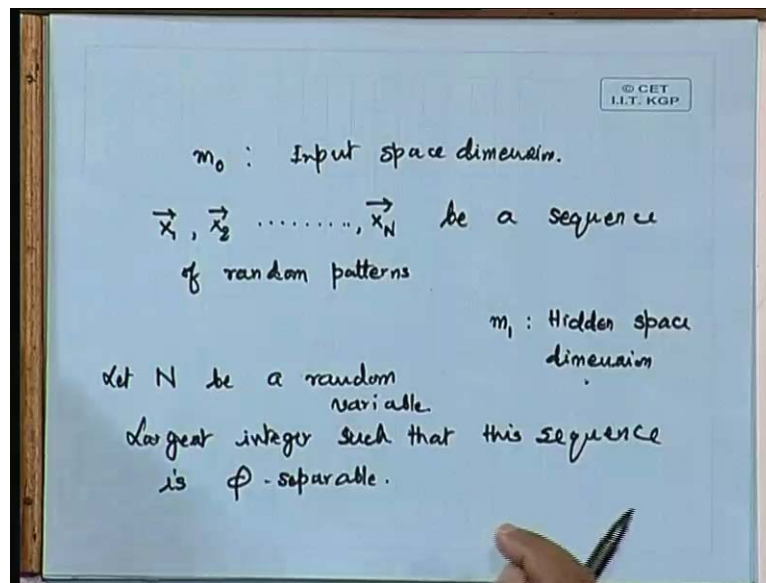 © CET
I.I.T. KGP
m₀ : Input space dimension.
x⃗₁, x⃗₂ ........., x⃗_N be a sequence
of random patterns
m₁ : Hidden space
dimension
Let N be a random
variable.
Largest integer such that this sequence
is φ-separable.